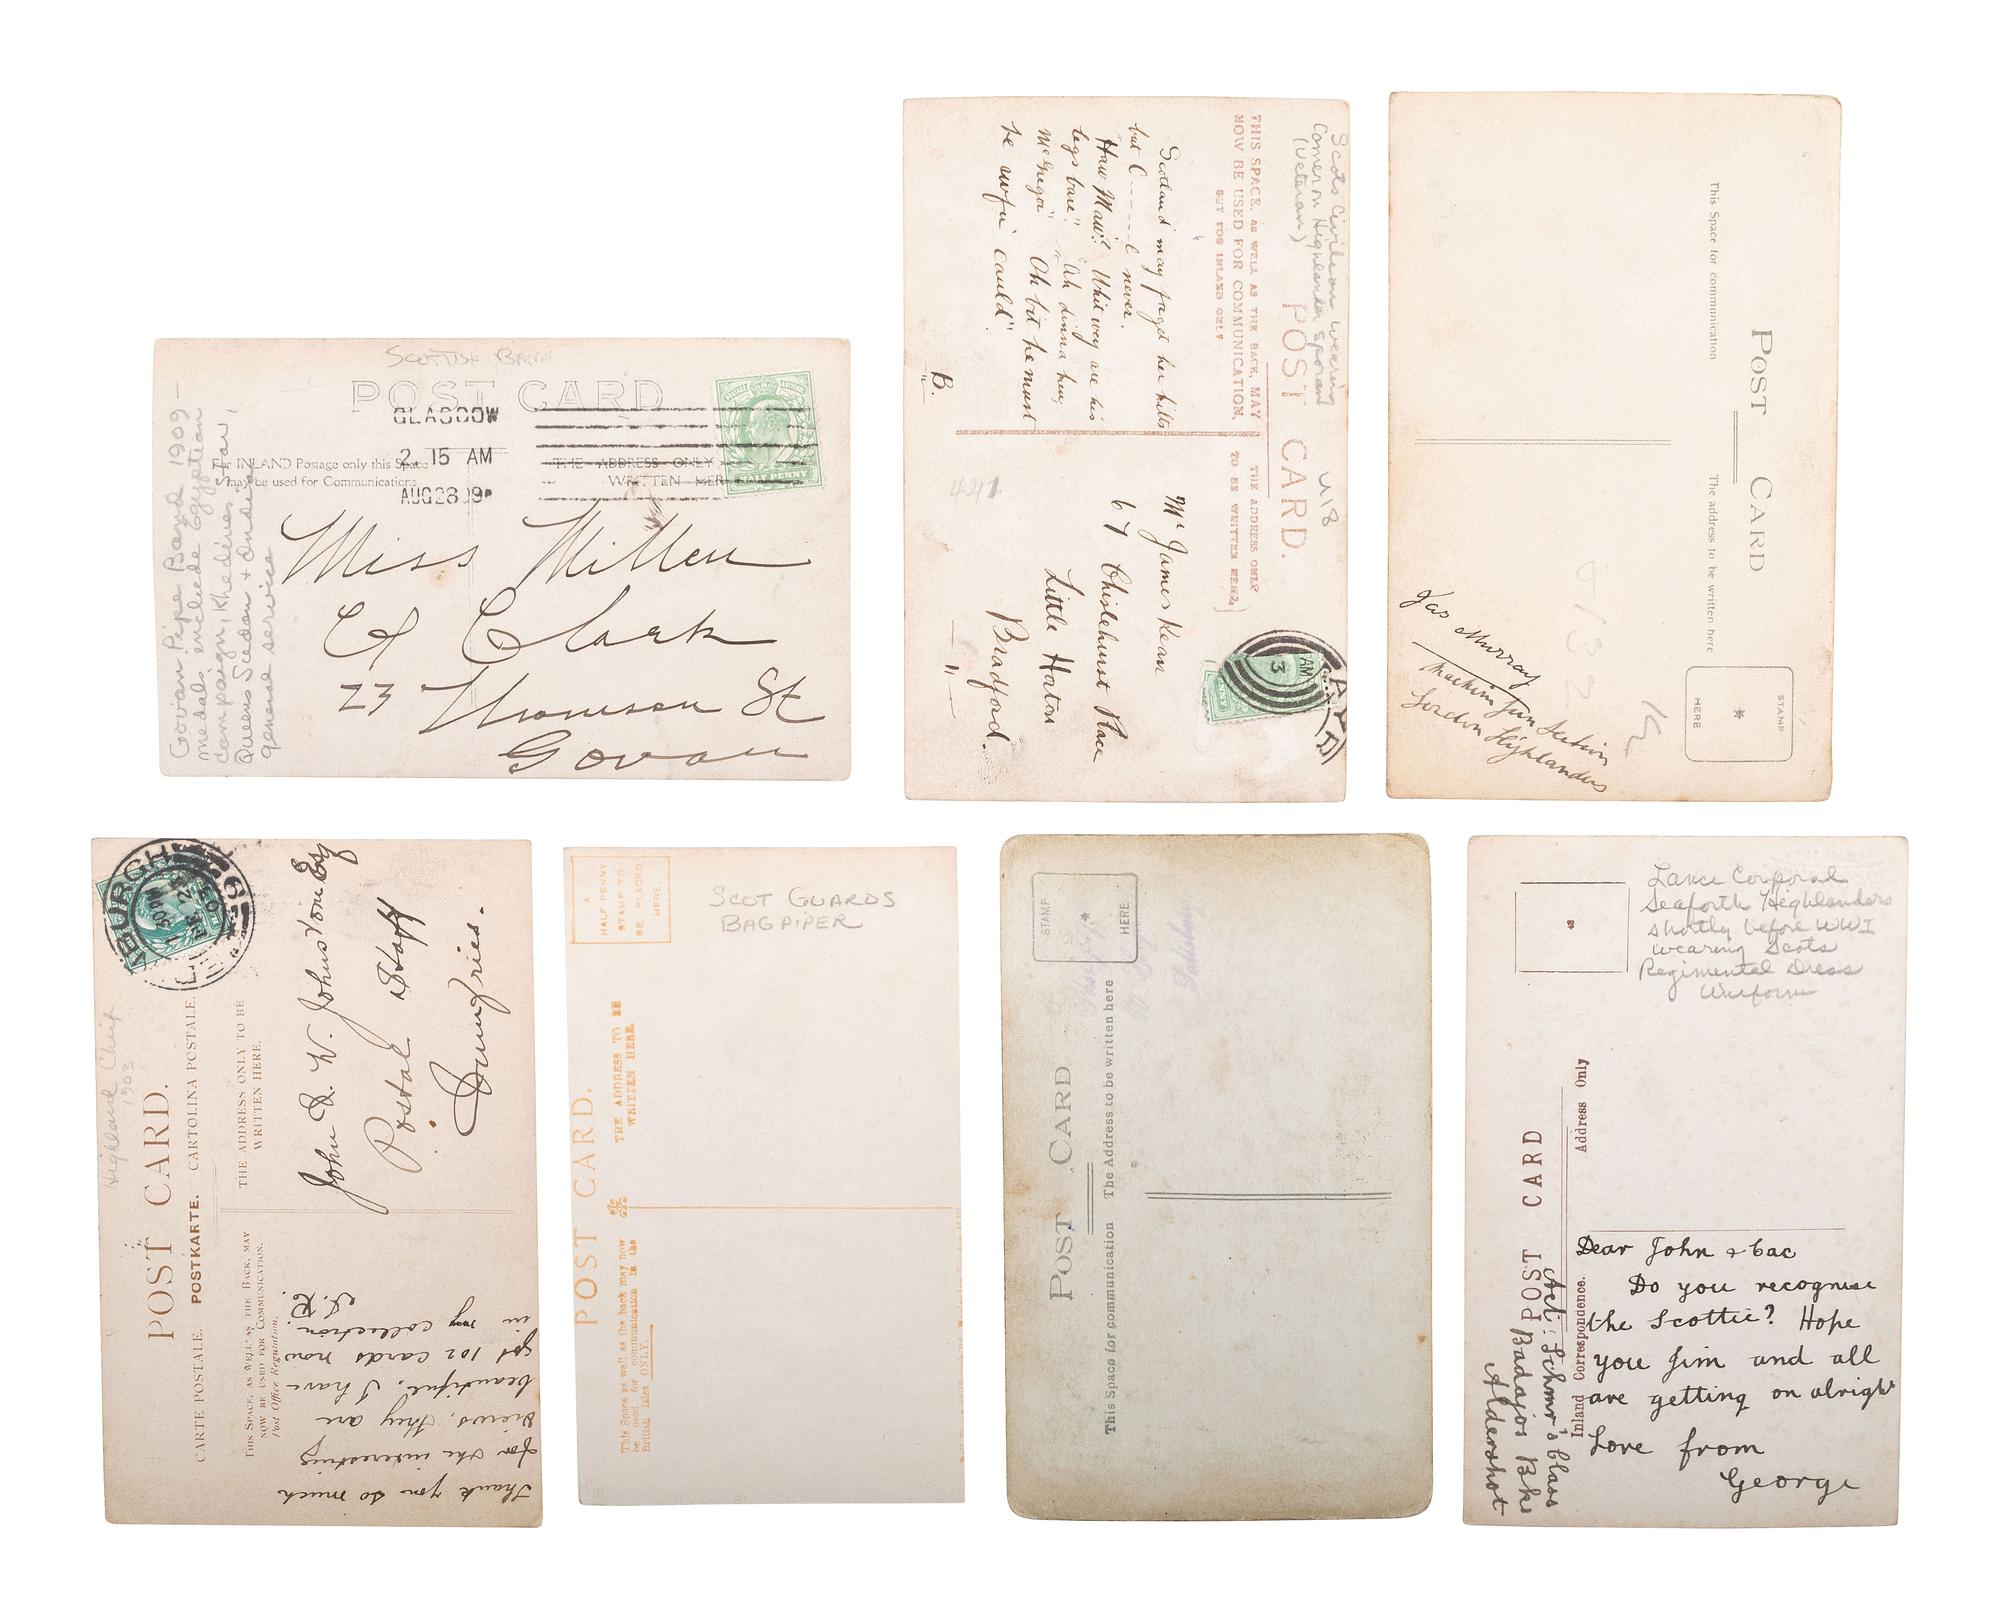 SCOTTISH BAND
POST CARD
GLASGOW
2. 15 AM
AUG 28 09
For INLAND Postage only this Space
may be used for Communications
THE ADDRESS ONLY
WRITTEN HERE
HALF PENNY
Govan Pipe Band 1909 -
medals include Egyptian
campaign, Khedives Star,
Queens Sudan + Indian
general service
Miss Millen
C/o Clark
23 Thomson St
Govan
Scots Civilian wearing
Cameron Highlander sporran
(Veteran)
U18
POST CARD.
THIS SPACE, AS WELL AS THE BACK, MAY
NOW BE USED FOR COMMUNICATION,
BUT FOR INLAND ONLY
THE ADDRESS ONLY
TO BE WRITTEN HERE.
Scotland may forget her kilts
but C----l never.
"Haw Maw! Whit wey are his
legs bare" "Ah dinna ken,
McGregor" "Oh bit he must
be awfu' cauld".
B.
421
AM
3
Mr James Kean
67 Chislehurst Place
Little Horton
Bradford.
POST CARD
This Space for communication
The address to be written here
STAMP
HERE
Jas Murray
Machine Gun Section
Gordon Highlanders
Highland Chief
1903
POST CARD.
CARTE POSTALE. POSTKARTE. CARTOLINA POSTALE.
THIS SPACE, AS WELL AS THE BACK, MAY
NOW BE USED FOR COMMUNICATION.
Post Office Regulation.
THE ADDRESS ONLY TO BE
WRITTEN HERE.
John D. W. Johnstone Esq
Postal Staff
Dumfries.
Thank you so much
for the interesting
views, they are
beautiful, I have
got 102 cards now
in my collection.
A
HALF-PENNY
STAMP TO
BE PLACED
HERE.
SCOT GUARDS
BAGPIPER
POST CARD.
This Space as well as the back may now
be used for communication in the
British Isles ONLY.
THE ADDRESS TO BE
WRITTEN HERE.
STAMP
HERE
POST CARD
This Space for communication The Address to be written here
Lance Corporal
Seaforth Highlanders
shortly before WWI
wearing Scots
Regimental Dress
Uniform
POST CARD
Inland Correspondence.
Address Only
Dear John +
Do you recognise
the Scottie? Hope
you Jim and all
are getting on alright
Love from
George
Class
Badajos Bks
Aldershot